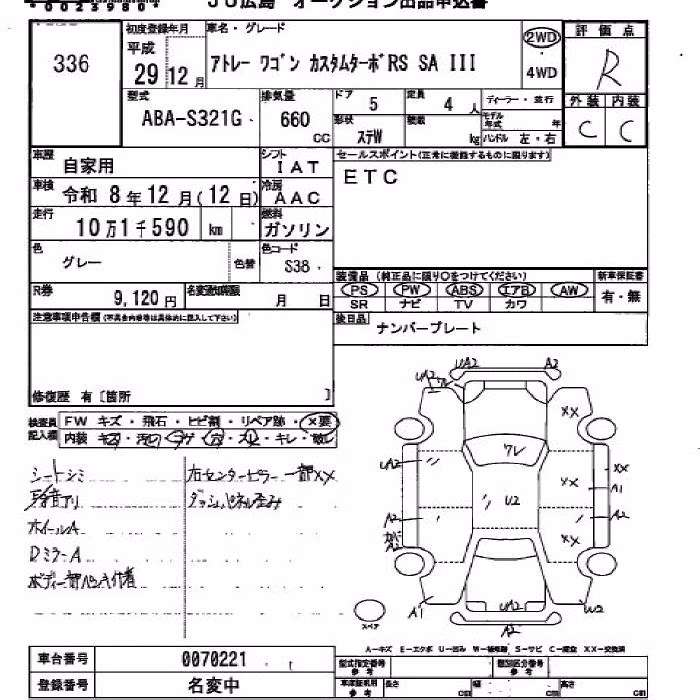 480239804 JU広島 オークション出品申込書
336
初度登録年月
平成
29 12 月
車名・グレード
アトレー ワゴン カスタムターボRS SA III
2WD
・
4WD
評価点
R
外装 内装
C C
型式
ABA-S321G
排気量
660
CC
ドア
5
定員
4 人
ディーラー・並行
形状
ステW
積載
kg
モデル年式 年
ハンドル 左・右
車歴
自家用
シフト
I AT
車検
令和 8 年 12 月 (12 日)
冷房
AAC
走行
10万1千590 km
燃料
ガソリン
色
グレー
色替
色コード
S38
R券
9,120 円
名変期限
月 日
セールスポイント(正常に機能するものに限ります)
ETC
装備品 (純正品に限り○をつけてください)
新車保証書
PS PW ABS エアB AW
SR ナビ TV カワ
有・無
後日品
ナンバープレート
注意事項申告欄 (不具合内容等は具体的に記入して下さい)
修復歴 有 [箇所 ]
検査員
記入欄
FW キズ・飛石・ヒビ割・リペア跡・×要
内装 キズ・汚れ・コゲ・穴・スレ・キレ・
シートシミ
異音アリ
ホイールA
DミラーA
右センターピラー一部XX
ダッシュパネル歪み
UA2
A2
UA2
ワレ
XX
ワレ
UA2
XX
XX
A1
U2
A2
A2
A2
XX
A1
UA2
A2
W2
スペア
A-キズ E-エクボ U-凹み W-補修跡 S-サビ C-腐食 XX-交換済
車台番号
0070221
登録番号
名変中
型式指定番号
参考
類別区分番号
参考
車体証明用
参考
長さ cm 幅 cm 高さ cm